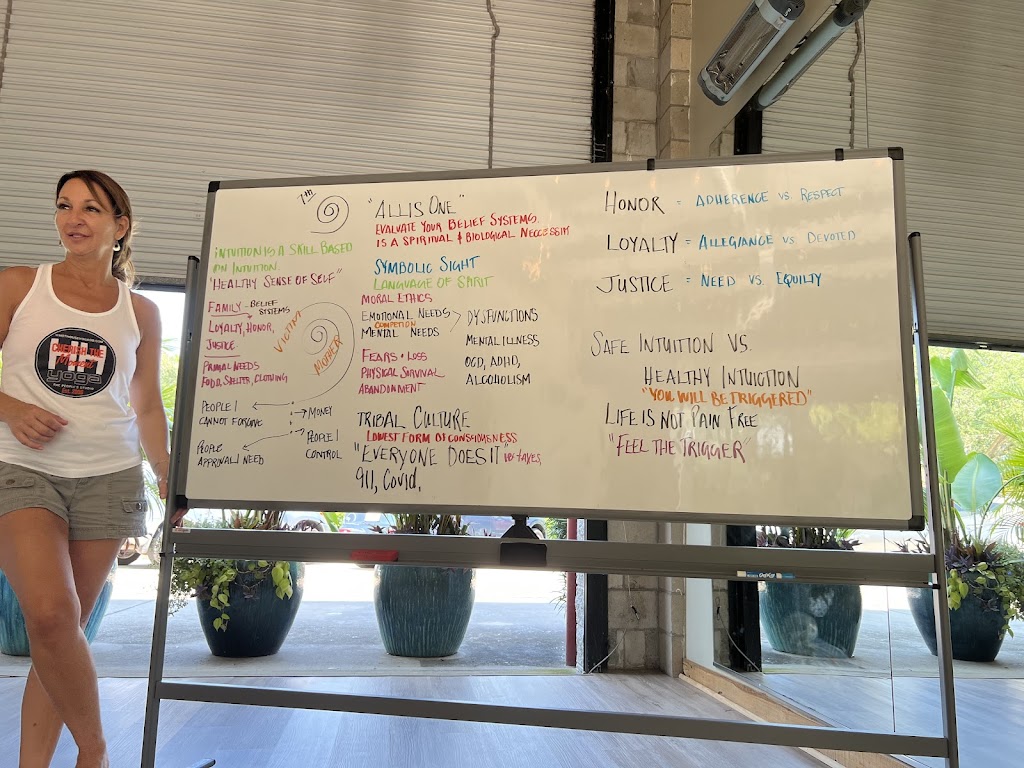 CHERISH THE
Moment
yoga
7th
INTUITION IS A SKILL BASED
ON INTUITION.
"HEALTHY SENSE OF SELF"
FAMILY - BELIEF
SYSTEMS
LOYALTY, HONOR,
JUSTICE
PRIMAL NEEDS
FOOD, SHELTER, CLOTHING
VICTIM
MOTHER
PEOPLE I
CANNOT FORGIVE
MONEY
PEOPLE
APPROVAL I NEED
PEOPLE I
CONTROL
"ALL IS ONE"
EVALUATE YOUR BELIEF SYSTEMS.
IS A SPIRITUAL & BIOLOGICAL NECCESSITY
SYMBOLIC SIGHT
LANGUAGE OF SPIRIT
MORAL ETHICS
EMOTIONAL NEEDS
MENTAL NEEDS
DYSFUNCTIONS
MENTAL ILLNESS
OCD, ADHD,
ALCOHOLISM
FEARS + LOSS
PHYSICAL SURVIVAL
ABANDONMENT
TRIBAL CULTURE
LOWEST FORM OF CONSIOUSNESS
"EVERYONE DOES IT"
911, Covid,
HONOR = ADHERENCE VS RESPECT
LOYALTY = ALLEGIANCE VS DEVOTED
JUSTICE = NEED VS. EQUILTY
SAFE INTUITION VS.
HEALTHY INTUITION
"YOU WILL BE TRIGGERED"
LIFE IS NOT PAIN FREE
"FEEL THE TRIGGER"